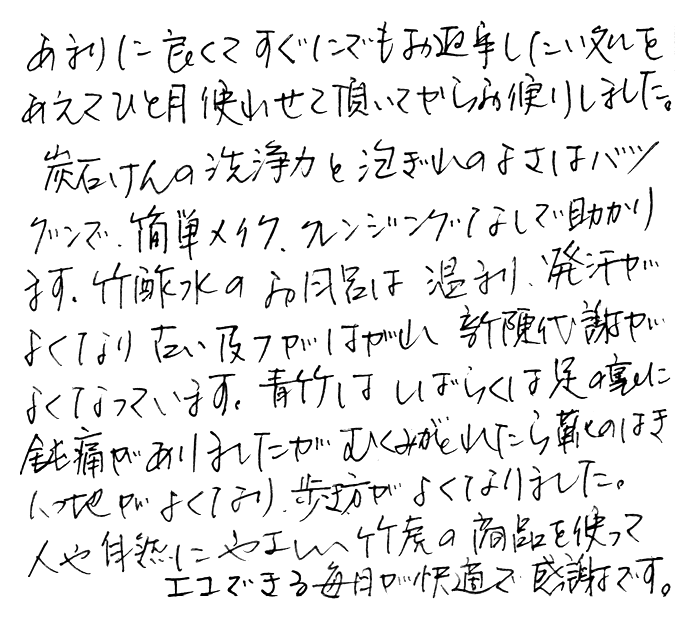 あまりに良くてすぐにでもお返事したい処を
あえてひと月使わせて頂いてからお便りしました。
炭石けんの洗浄力と泡ぎれのよさはバツ
グンで、簡単メイク、クレンジングなしで助かり
ます。竹酢水のお風呂は温まり、発汗が
よくなり古い皮フがはがれ新陳代謝が
よくなっています。青竹はしばらくは足の裏に
鈍痛がありましたがむくみがとれたら靴のはき
心地がよくなり、歩き方がよくなりました。
人や自然にやさしい竹虎の商品を使って
エコできる毎日が快適で感謝です。